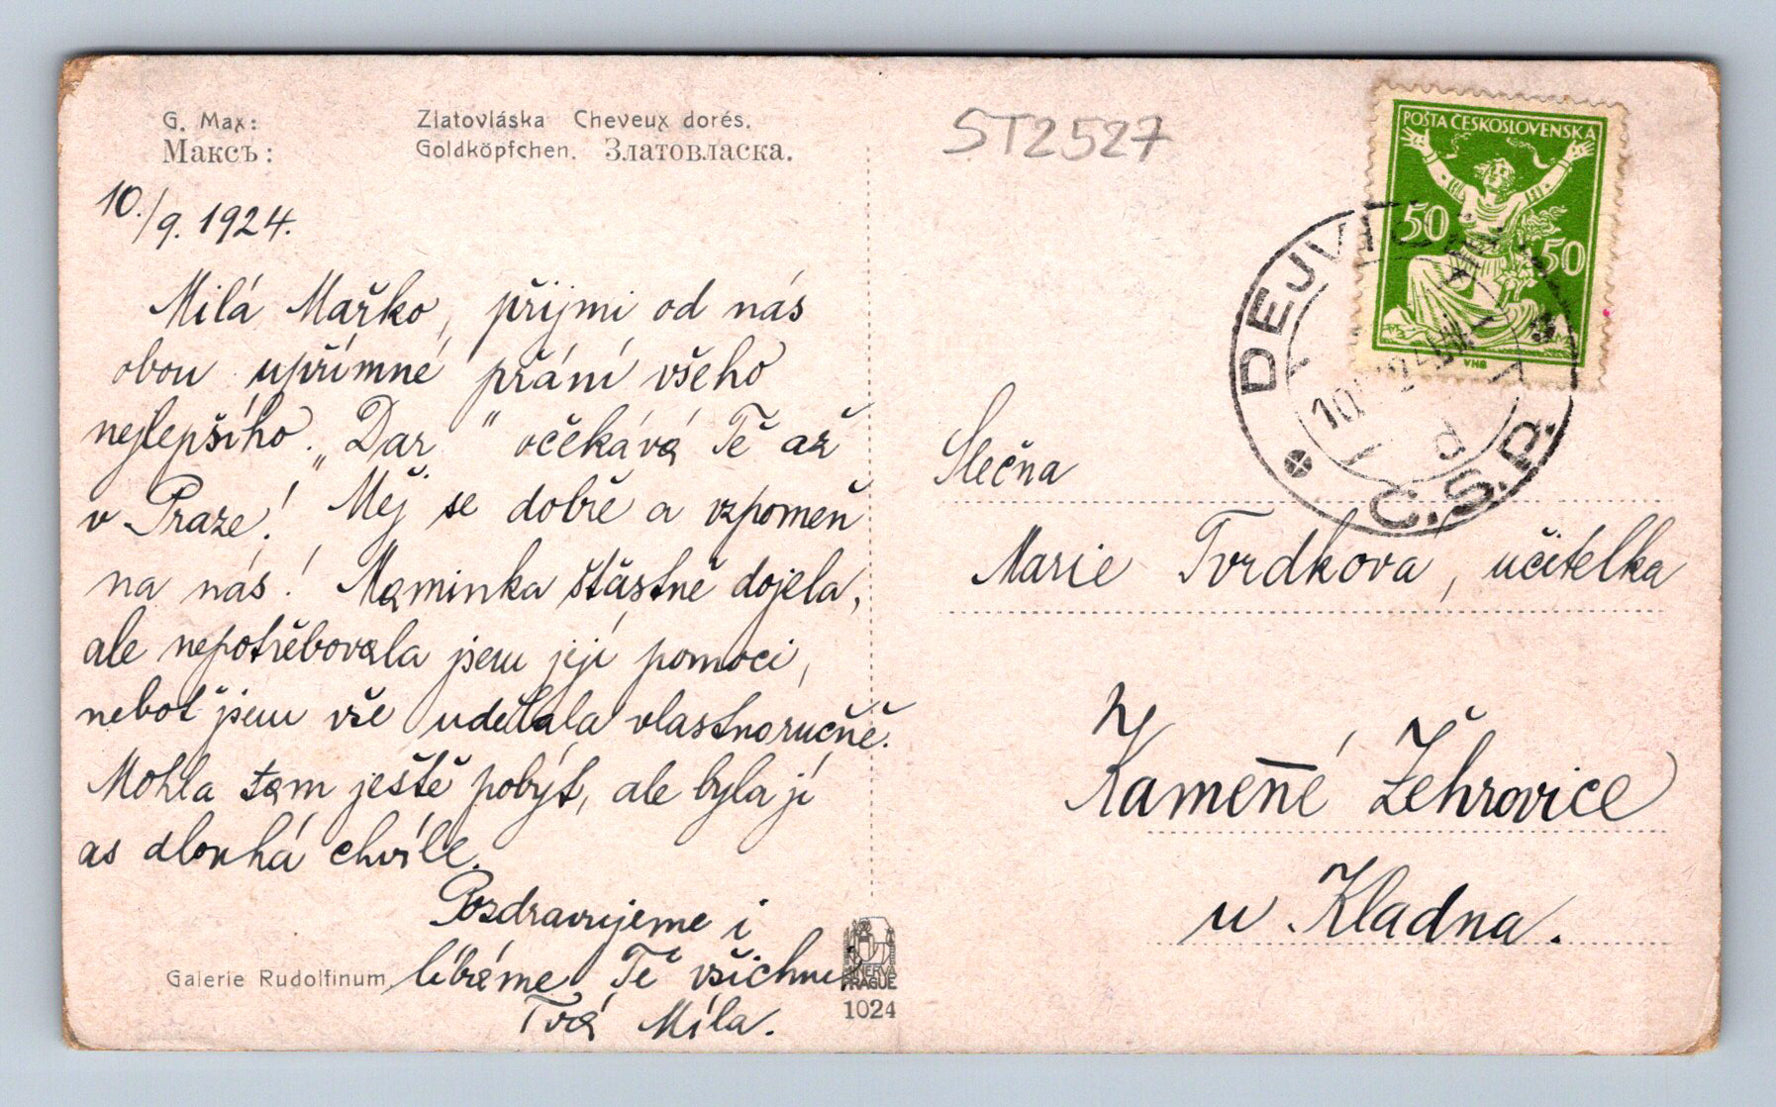 G. Max:
Максъ:
Zlatovláska Cheveux dorés.
Goldköpfchen. Златовласка.
ST2527
POŠTA ČESKOSLOVENSKÁ
50
50
DEJVIC
Č.S.P.
10.
10./9. 1924.
Milá Mařko, přijmi od nás
obou upřímné přání všeho
nejlepšího. „Dar" očěkává Tě až
v Praze! Měj se dobře a vzpomeň
na nás! Maminka štăstně dojela,
ale nepotřebovala jsem její pomoci,
neboť jsem vše udělala vlastnoručně.
Mohla tam ještě pobýt, ale byla jí
as dlouhá chvíle.
Pozdravujeme i
líbáme Tě všichni
Tvá Míla.
Galerie Rudolfinum
MINERVA
PRAGUE
1024
Slečna
Marie Tvrdkova, učitelka
Kamenné Žehrovice
u Kladna.